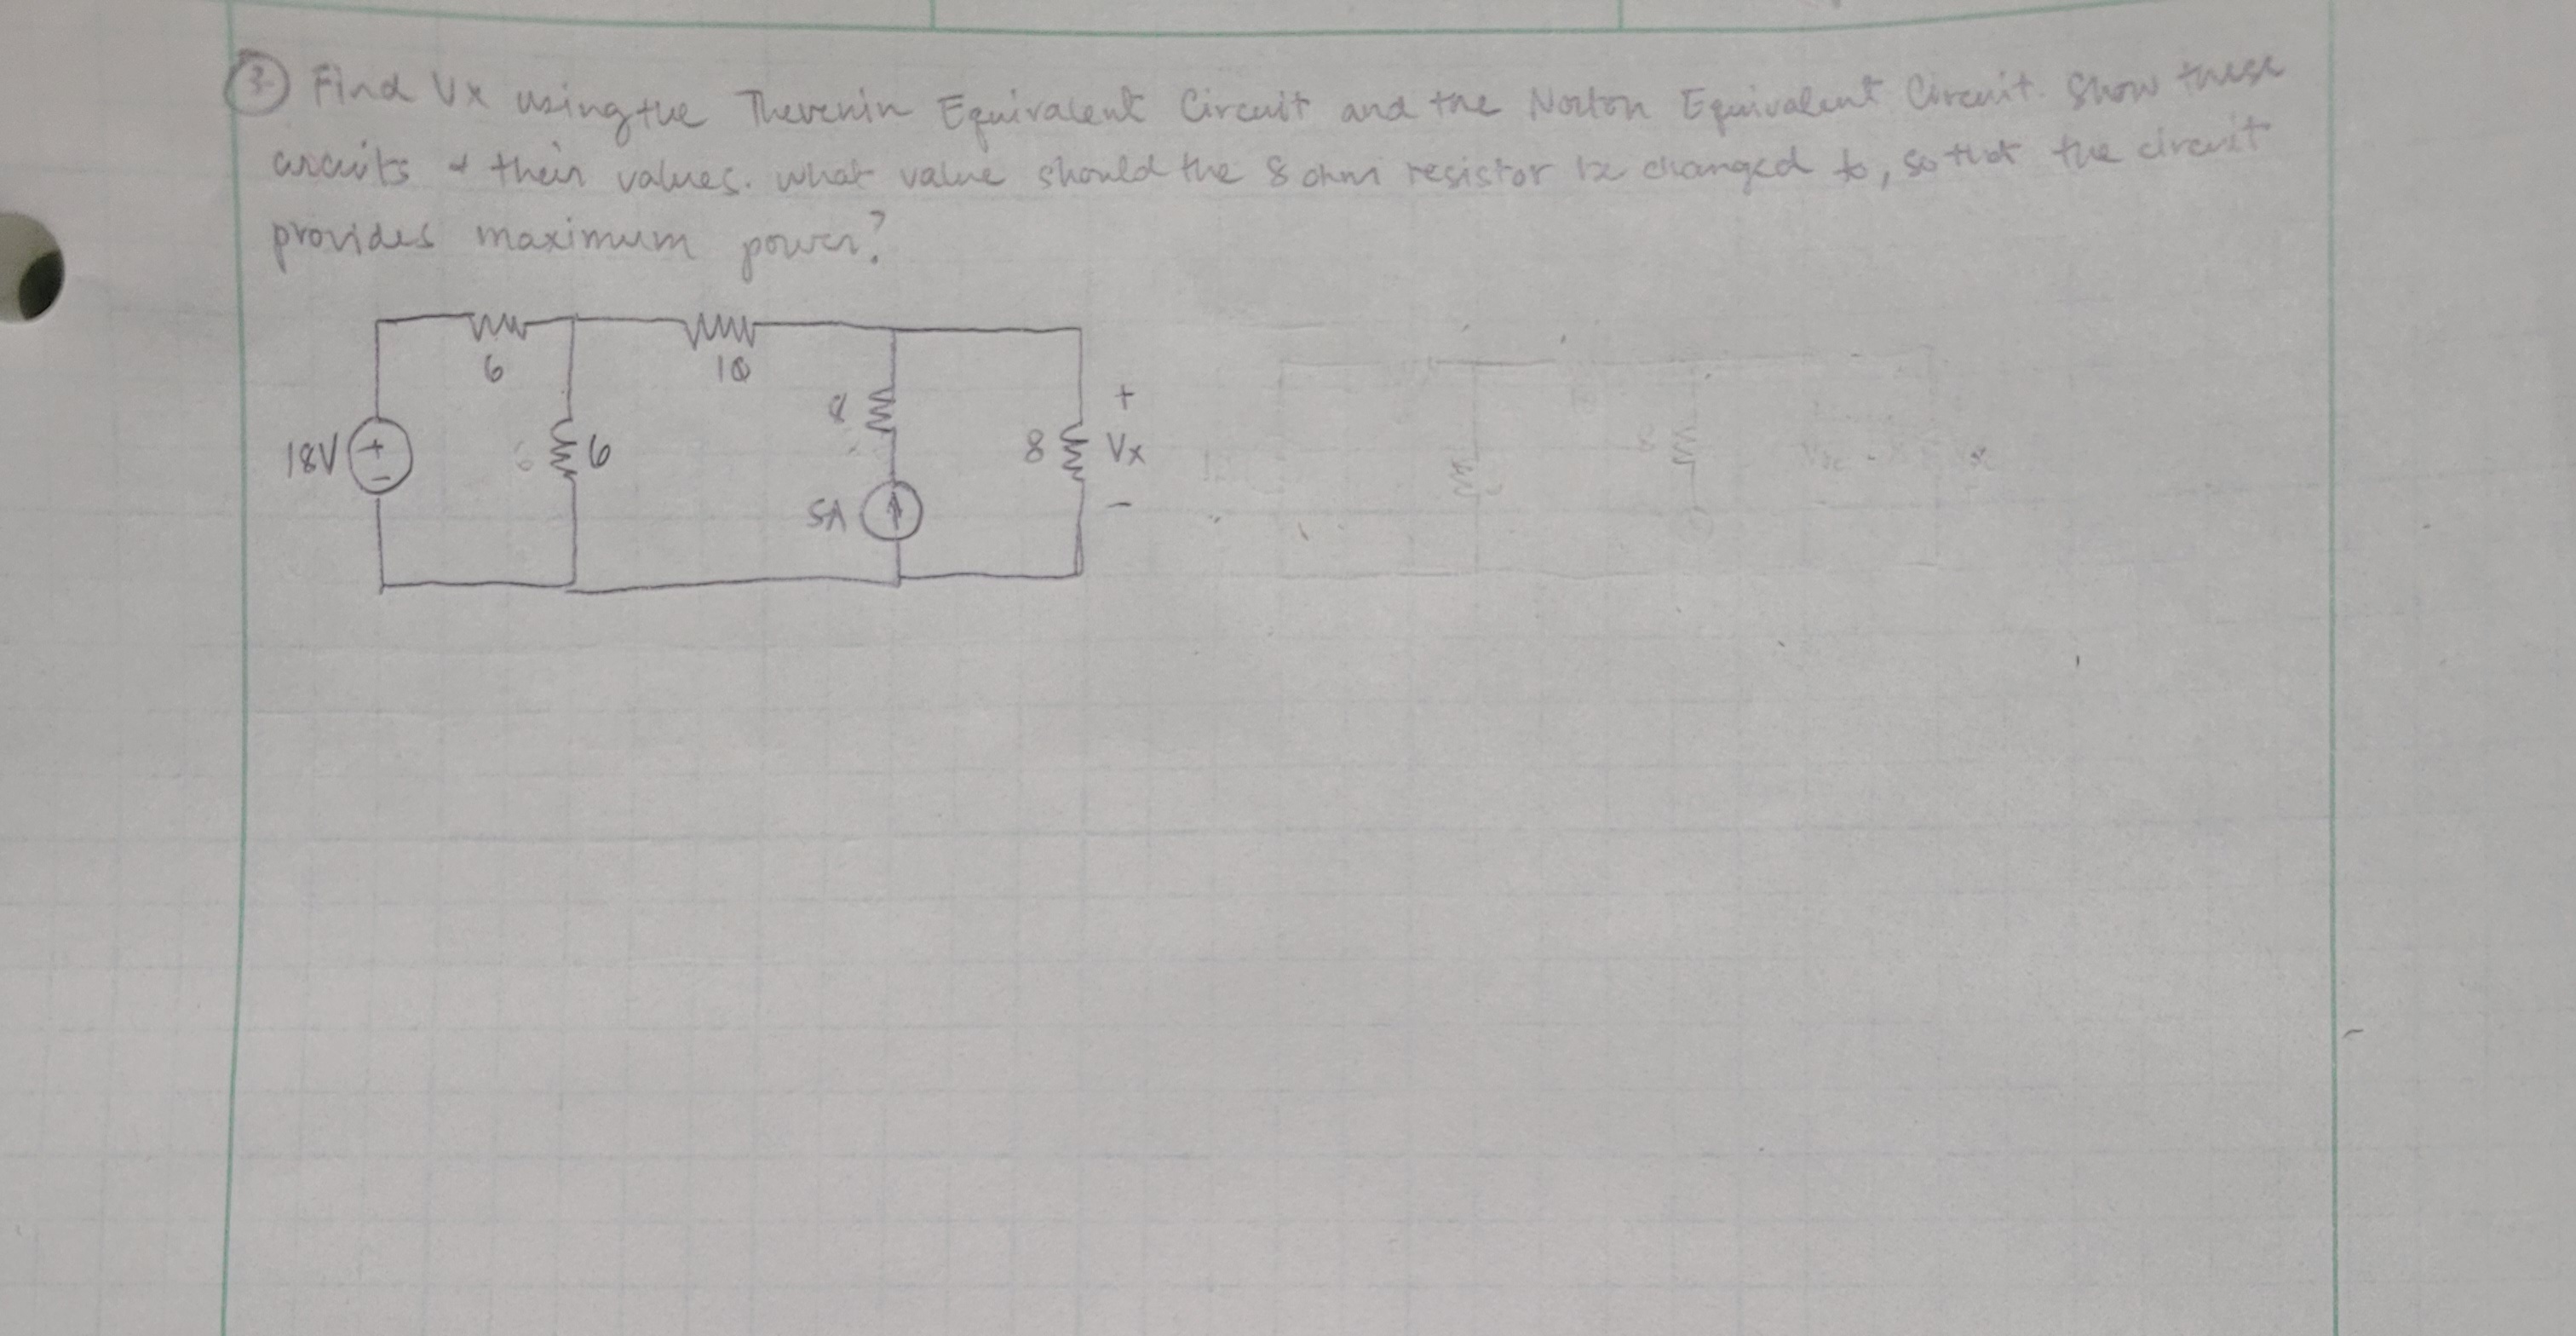 3 Find Vx using the Thevenin Equivalent Circuit and the Norton Equivalent Circuit. Show these
circuits & their values. What value should the 8 ohm resistor be changed to, so that the circuit
provides maximum power?
6
10
8
+
18V
+
-
6
8
Vx
5A
-